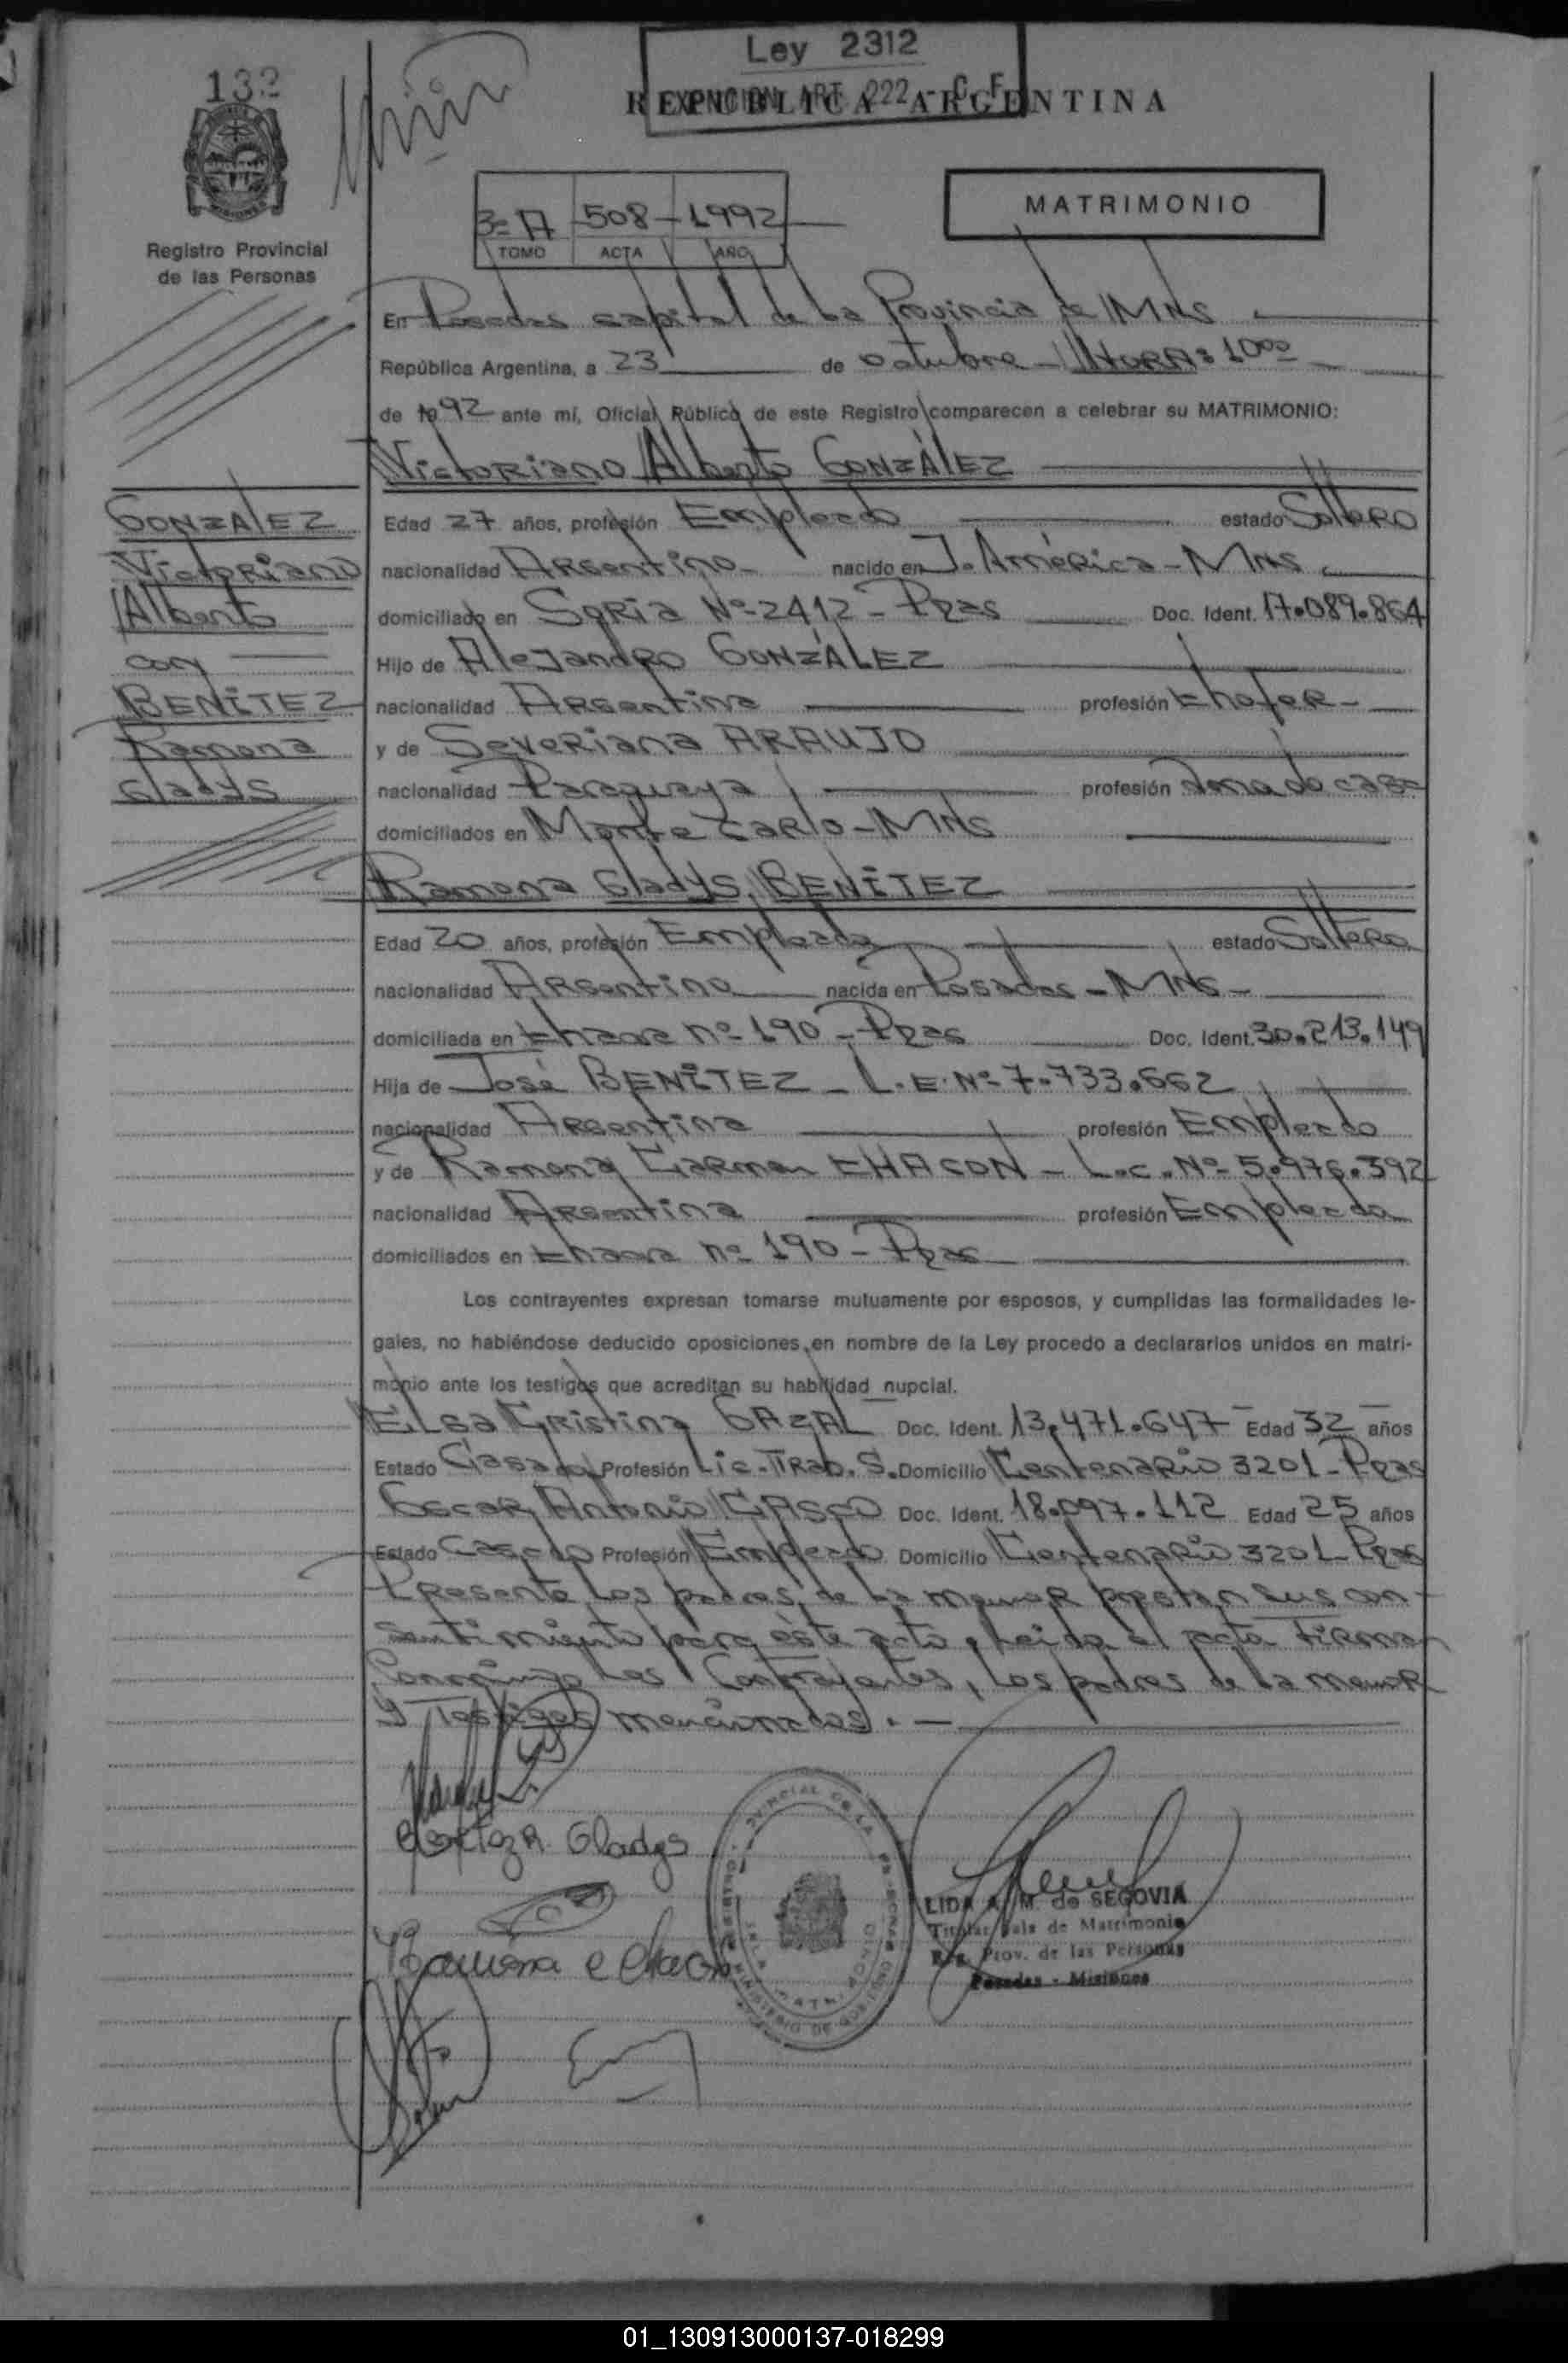 132
Ley 2312
EXENCION ART. 222 - C.F.
REPUBLICA ARGENTINA
Registro Provincial
de las Personas
3=A 508 - 1992
TOMO ACTA AÑO
MATRIMONIO
En Posadas capital de la Provincia de MNS
República Argentina, a 23 de octubre - HORA: 10°°
de 1992 ante mí, Oficial Público de este Registro comparecen a celebrar su MATRIMONIO:
Victoriano Alberto GONZÁLEZ
GONZALEZ
Victoriano
Alberto
con
BENÍTEZ
Ramona
Gladys
Edad 27 años, profesión Empleado estado Soltero
nacionalidad Argentino - nacido en J. América - MNS
domiciliado en Soria Nº 2412 - Pdas Doc. Ident. 17.089.864
Hijo de Alejandro GONZÁLEZ
nacionalidad Argentina profesión Chofer -
y de Severiana ARAUJO
nacionalidad Paraguaya profesión Ama de casa
domiciliados en Monte Carlo - MNS
Ramona Gladys BENÍTEZ
Edad 20 años, profesión Empleada estado Soltera
nacionalidad Argentina nacida en Posadas - MNS -
domiciliada en nº 190 - Pdas Doc. Ident. 30.213.149
Hija de José BENÍTEZ - L.E. Nº 7.733.662
nacionalidad Argentina profesión Empleado
y de Ramona Carmen CHACON - L.C. Nº 5.976.392
nacionalidad Argentina profesión Empleada
domiciliados en nº 190 - Pdas
Los contrayentes expresan tomarse mutuamente por esposos, y cumplidas las formalidades le-
gales, no habiéndose deducido oposiciones, en nombre de la Ley procedo a declararlos unidos en matri-
monio ante los testigos que acreditan su habilidad nupcial.
Elsa Cristina GAZAL Doc. Ident. 13.471.647 - Edad 32 años
Estado Casada Profesión Lic. Trab. S. Domicilio Centenario 3201 - Pdas
Oscar Antonio CASCO Doc. Ident. 18.097.112 Edad 25 años
Estado Casado Profesión Empleado Domicilio Centenario 3201 - Pdas
Presente los padres de la menor prestan sus con-
sentimiento para éste acto, Leída el acta firman
Conmigo los Contrayentes, los padres de la menor
y Testigos mencionados. -
R. Gladys
Ramona
LIDA A. M. de SEGOVIA
Titular Sala de Matrimonio
Reg. Prov. de las Personas
Posadas - Misiones
01_130913000137-018299